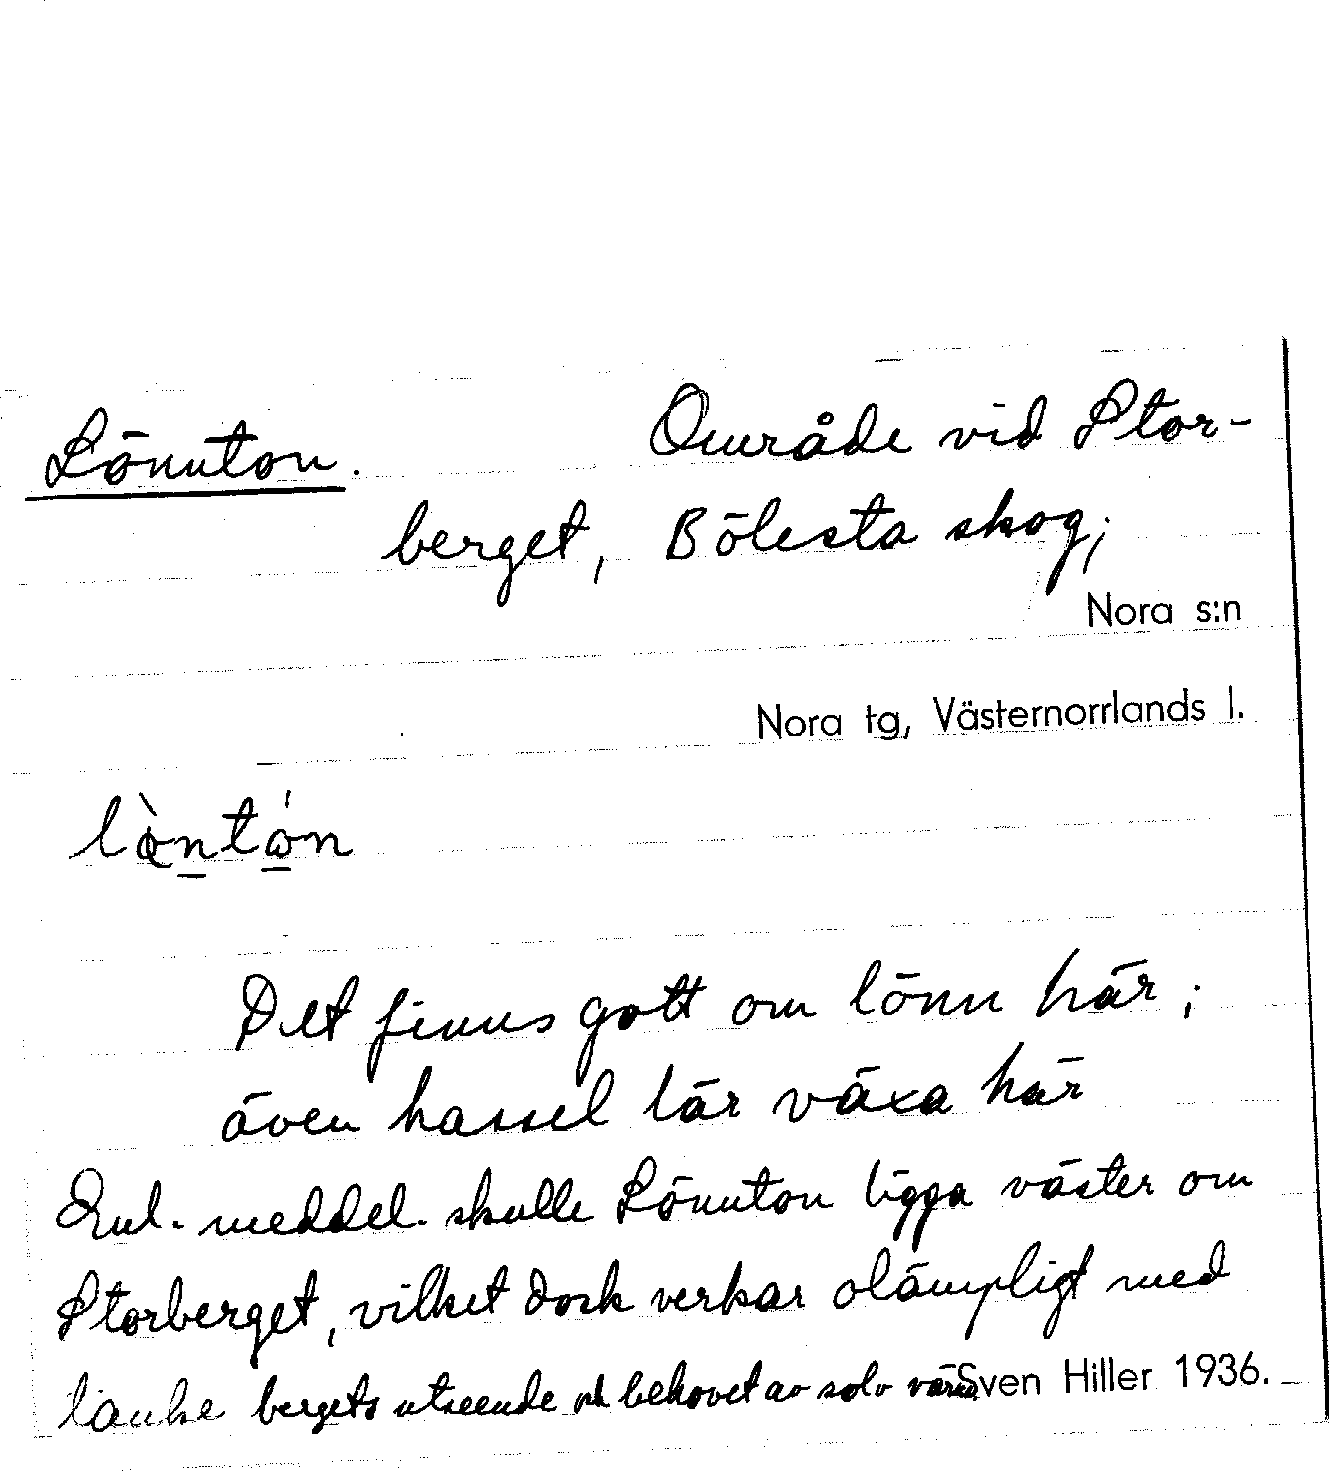 Lönnton. Område vid Stor-
berget, Bölesta skog;
Nora s:n
Nora tg, Västernorrlands l.
Det finns gott om lönn här;
även hassel lär växa här
Enl. meddel. skulle Lönnton ligga väster om
Storberget, vilket dock verkar olämpligt med
tanke bergets utseende och behovet av sol o värme
Sven Hiller 1936.